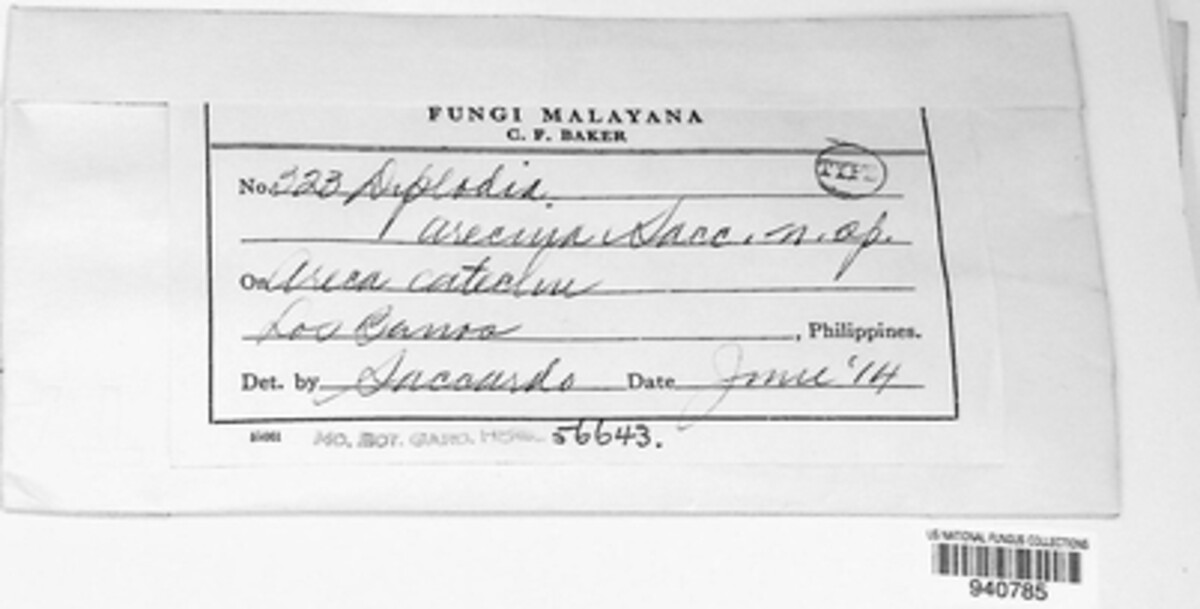 FUNGI MALAYANA
C. F. BAKER
TYPE
No. 323 Diplodia
arecina Sacc. n. sp.
On Areca catechu
Los Banos, Philippines.
Det. by Saccardo Date June '14
MO. BOT. GARD. HERB. 56643.
US NATIONAL FUNGUS COLLECTIONS
940785